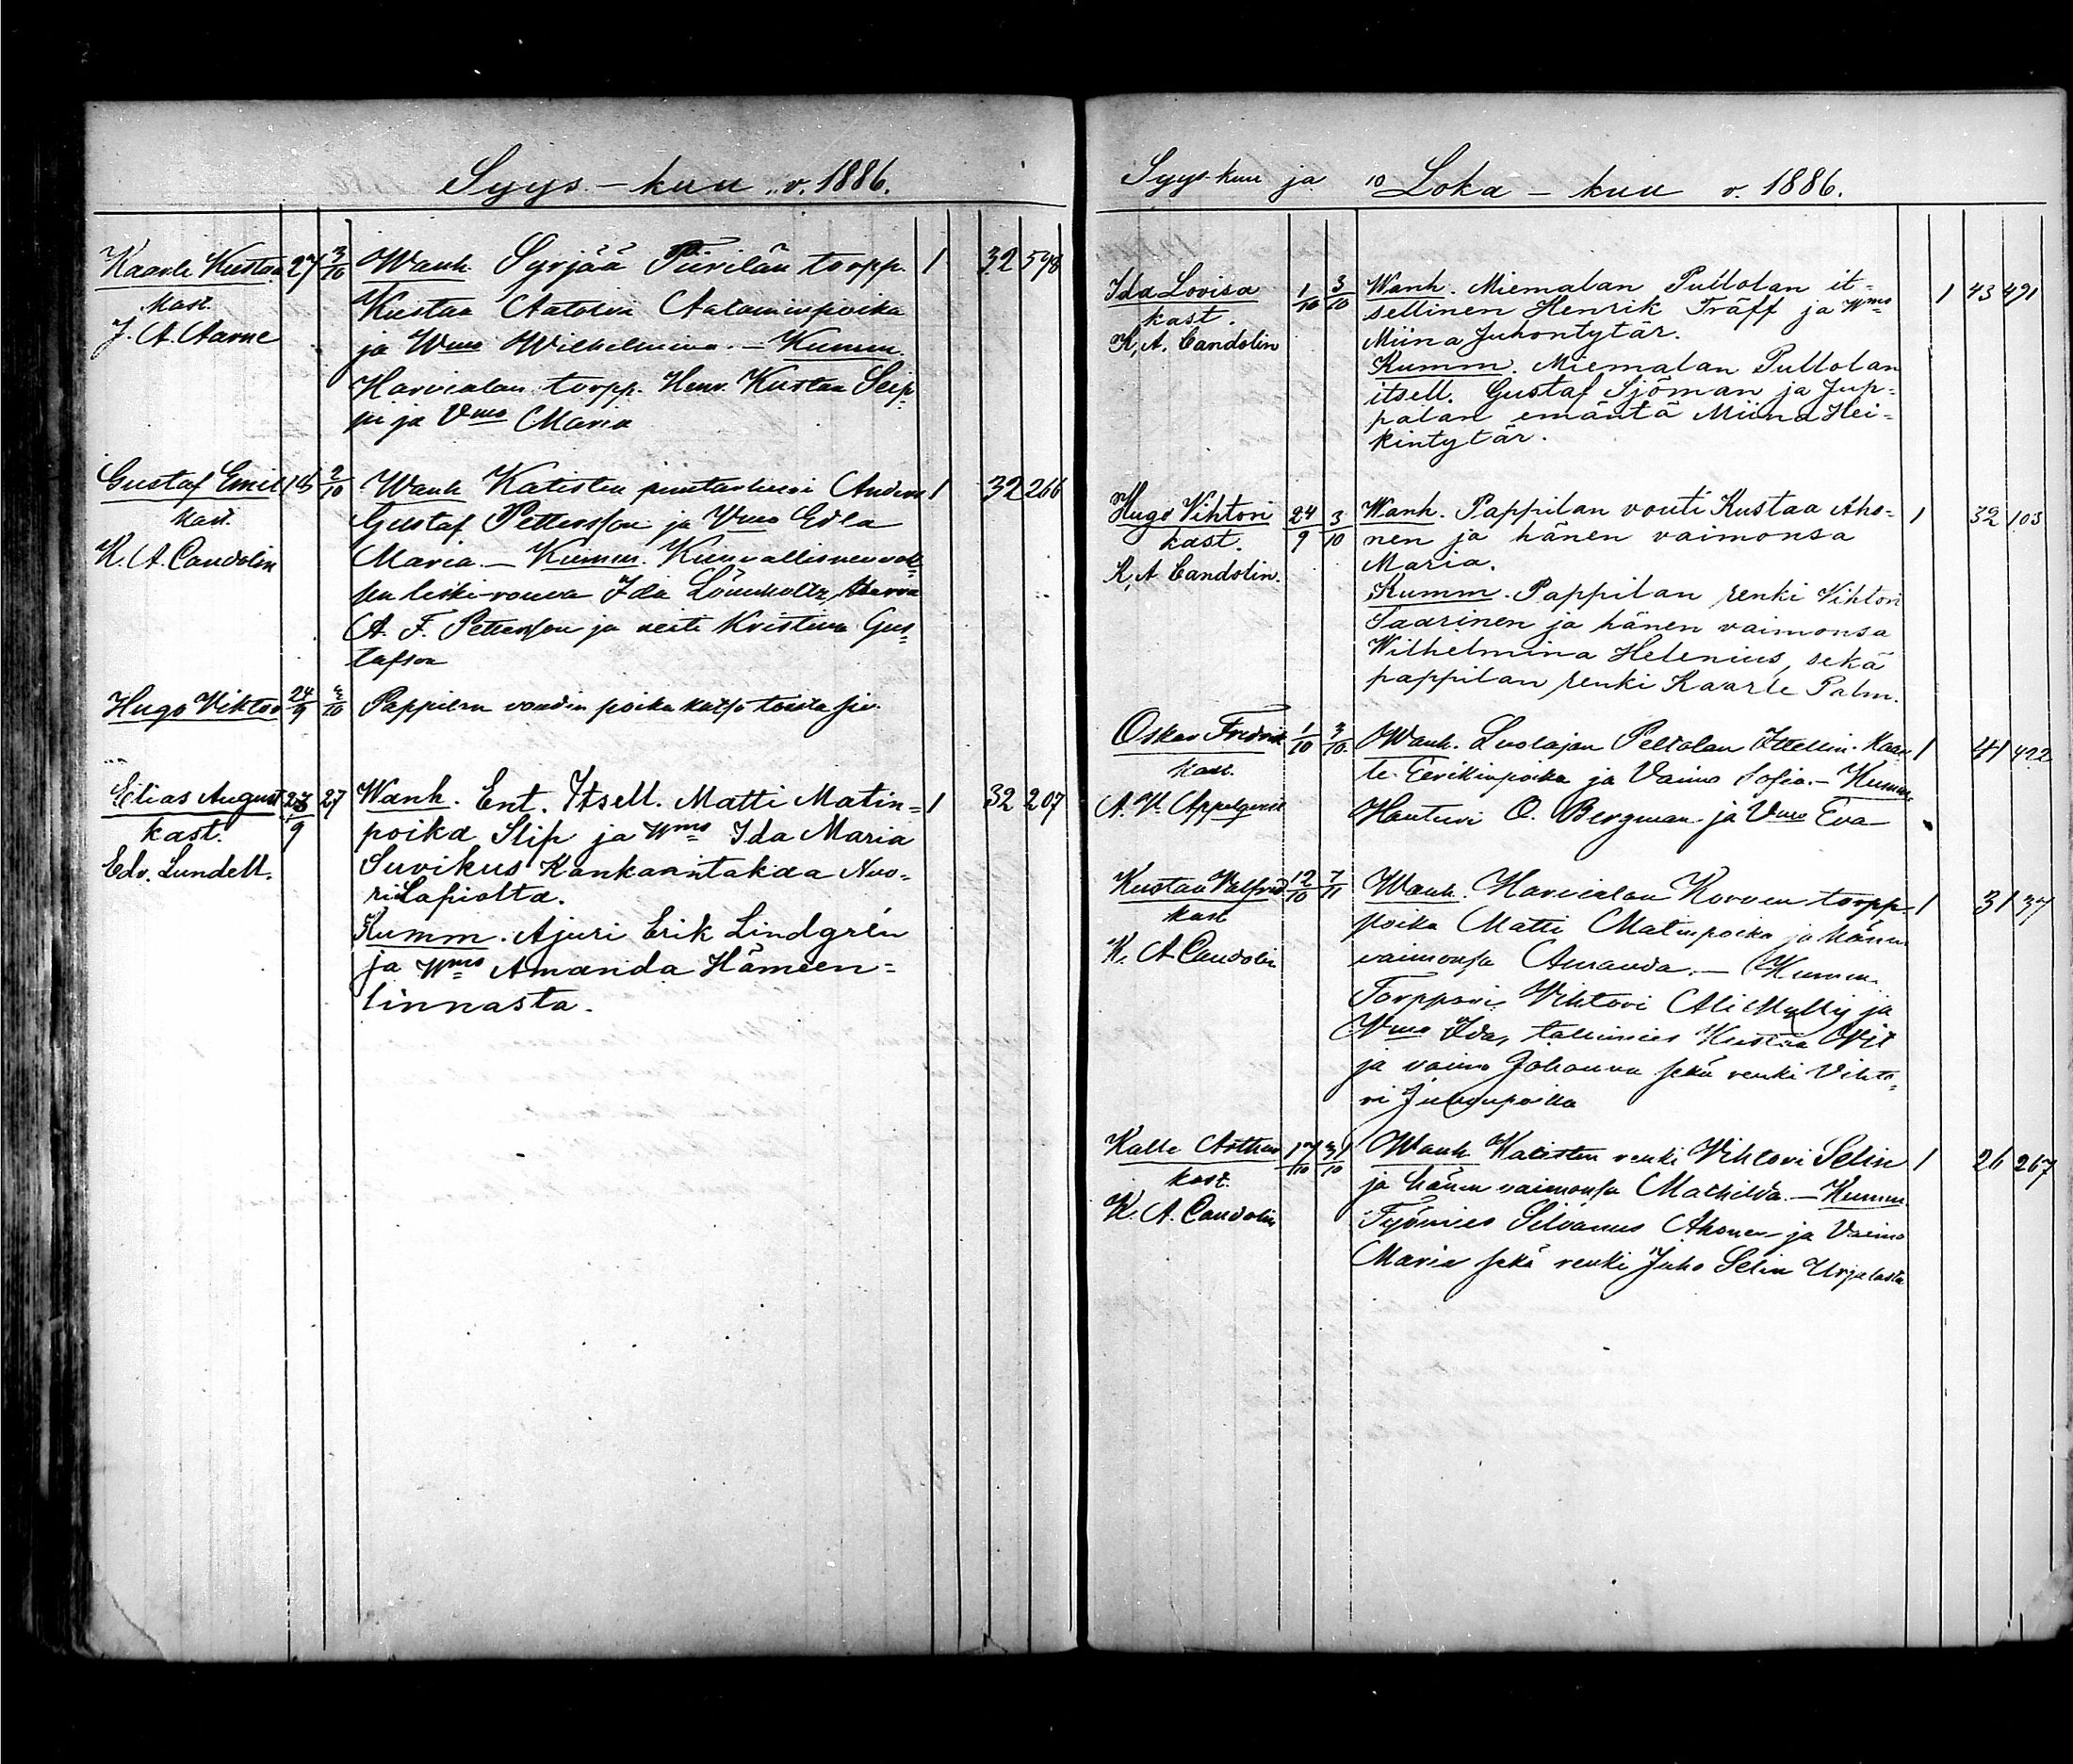 Syys-kuu v. 1886.
Kaarle Kustaa 27 3/10 Wanh. Syrjää Piirilän torpp. 1 32 598
kast. Kustaa Aatolin Aataminpoika
J. A. Aarne ja Wmo Wilhelmina. — Kumm.
Harvialan torpp. Henr. Kustaa Seip-
pi ja Vmo Maria
Gustaf Emil 18 2/10 Wanh Katisten puutarhuri Anders 1 32 266
kast. Gustaf Pettersson ja Vmo Edla
K. A. Candolin Maria — Kumm. Kunnallisneuvok-
sen leski-rouva Ida Lönnholtz, Herra
A. F. Pettersson ja neiti Kristina Gus-
tafson
Hugo Viktor 24/9 3/10 Pappilan voudin poika katso toista siv.
Elias August 23/9 27 Wanh. Ent. Itsell. Matti Matin- 1 32 207
kast. poika Slip ja Wmo Ida Maria
Edv. Lundell. Suvikus Kankaantakaa Nuo-
ri Lapiolta.
Kumm. Ajuri Erik Lindgrén
ja Wmo Amanda Hämeen-
linnasta.
Syys-kuu ja 10 Loka-kuu v. 1886.
Ida Lovisa 1/10 3/10 Wanh. Miemalan Pullolan it- 1 43 491
kast. sellinen Henrik Träff ja Wmo
K. A. Candolin Miina Juhontytär.
Kumm. Miemalan Pullolan
itsell. Gustaf Sjöman ja Jup-
palan emäntä Miina Hei-
kintytär.
Hugo Vihtori 24/9 3/10 Wanh. Pappilan vouti Kustaa Aho- 1 32 103
kast. nen ja hänen vaimonsa
K. A Candolin. Maria.
Kumm. Pappilan renki Vihtori
Saarinen ja hänen vaimonsa
Wilhelmina Helenius, sekä
pappilan renki Kaarle Palm.
Oskar Fredrik 1/10 3/10. Wanh. Luolajan Peltolan Itsellin. Kaar- 1 41 422
kast. le Eerikinpoika ja Vaimo Sofia. — Kumm.
Hanturi O. Bergman ja Vmo Eva
Kustaa Valfrid 12/10 7/11 Wanh. Harvialan Korven torpp. 1 31 37
kast poika Matti Matinpoika ja hänen
K. A Candolin vaimonsa Amanda. — Kumm.
Torppari Vihtori Ali Mylly ja
Vmo Ida, tallimies Kustaa
ja vaimo Johanna sekä renki Vihto-
ri Juhonpoika
Kalle Arthur 17/10 31/10 Wanh Katisten renki Vihtori Selin 1 26 267
kast. ja hänen vaimonsa Mathilda. — Kumm.
K. A. Candolin Työmies Silvanus Ahonen ja Vaimo
Maria sekä renki Juho Selin Urjalasta